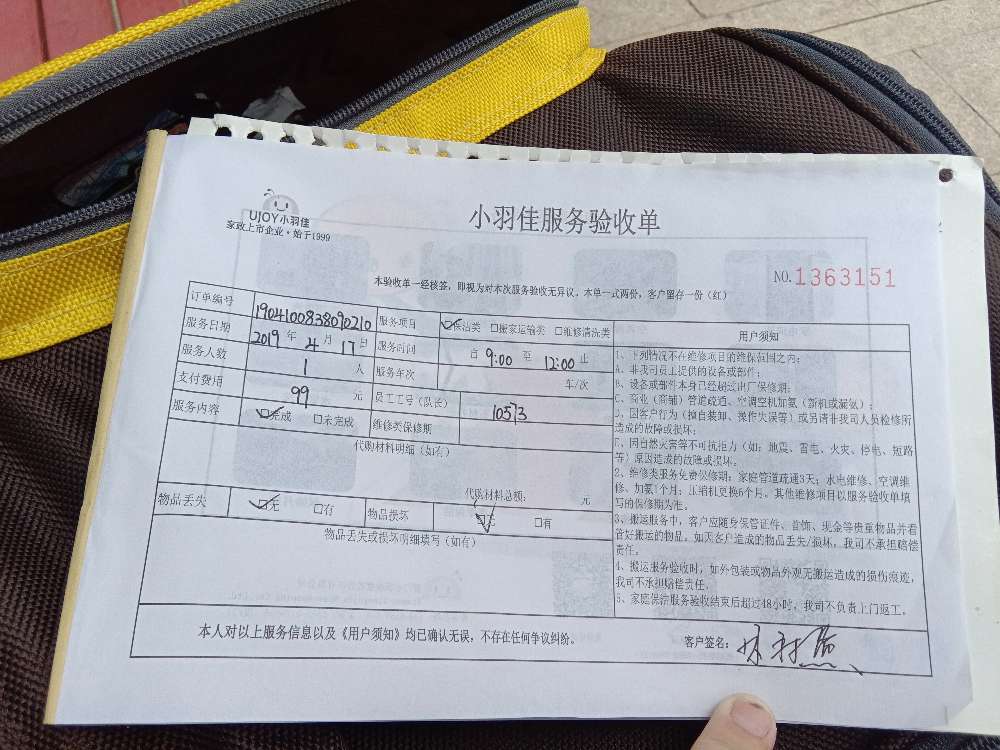 UJOY小羽佳
家政上市企业·始于1999
小羽佳服务验收单
NO.1363151
本验收单一经核签,即视为对本次服务验收无异议。本单一式两份,客户留存一份(红)
订单编号 1904100838090210 服务项目 ☑保洁类 □搬家运输类 □维修清洗类
服务日期 2019年4月17日 服务时间 自9:00至12:00止
服务人数 1人 服务车次 车/次
支付费用 99元 员工工号(队长) 10573
服务内容 ☑完成 □未完成 维修类保修期
代购材料明细(如有)
代购材料总额: 元
物品丢失 ☑无 □有 物品损坏 ☑无 □有
物品丢失或损坏明细填写(如有)
用户须知
1、下列情况不在维修项目的维保范围之内:
A、非我司员工提供的设备或部件;
B、设备或部件本身已经超过出厂保修期;
C、商业(商铺)管道疏通、空调空机加氨(新机或漏氨);
D、因客户行为(擅自装卸、操作失误等)或另请非我司人员检修所
造成的故障或损坏;
E、因自然灾害等不可抗拒力(如:地震、雷电、火灾、停电、短路
等)原因造成的故障或损坏。
2、维修类服务免费保修期:家庭管道疏通3天;水电维修、空调维
修、加氨1个月;压缩机更换6个月。其他维修项目以服务验收单填
写的保修期为准。
3、搬运服务中,客户应随身保管证件、首饰、现金等贵重物品并看
管好搬运的物品。如灭客户造成的物品丢失/损坏,我司不承担赔偿
责任。
4、搬运服务验收时,如外包装或物品外观无搬运造成的损伤痕迹,
我司不承担赔偿责任。
5、家庭保洁服务验收结束后超过48小时,我司不负责上门返工。
本人对以上服务信息以及《用户须知》均已确认无误,不存在任何争议纠纷。
客户签名: